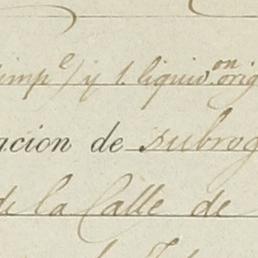 imp^e/ y l. liquid^on orig
ación de subrog
de la Calle de